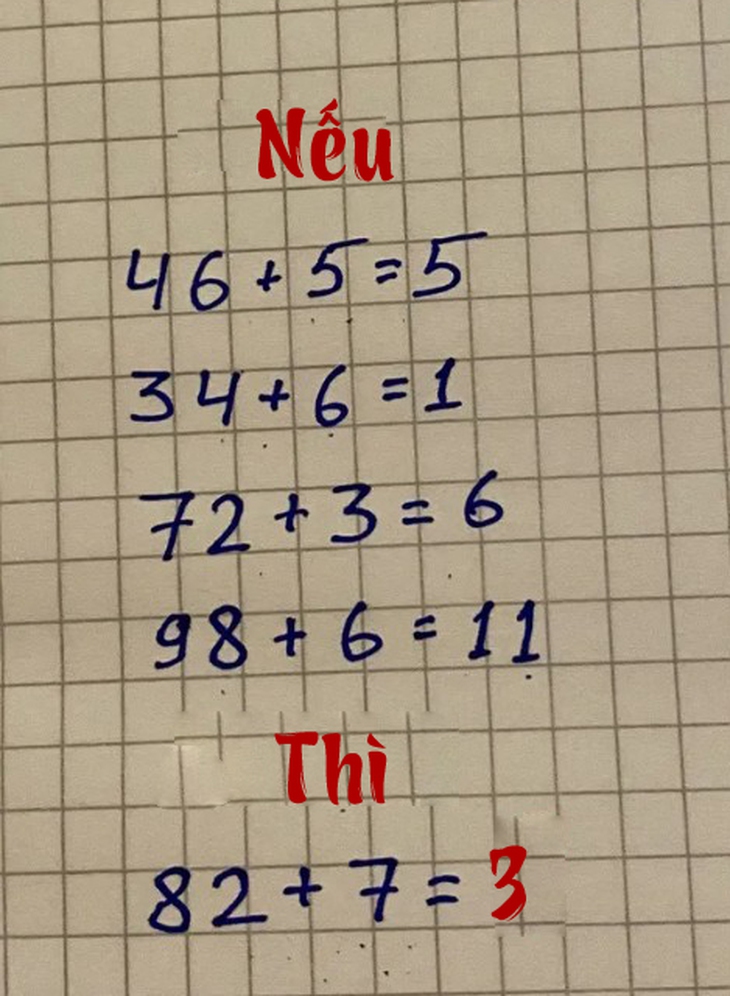 Nếu
46 + 5 = 5
34 + 6 = 1
72 + 3 = 6
98 + 6 = 11
Thì
82 + 7 = 3